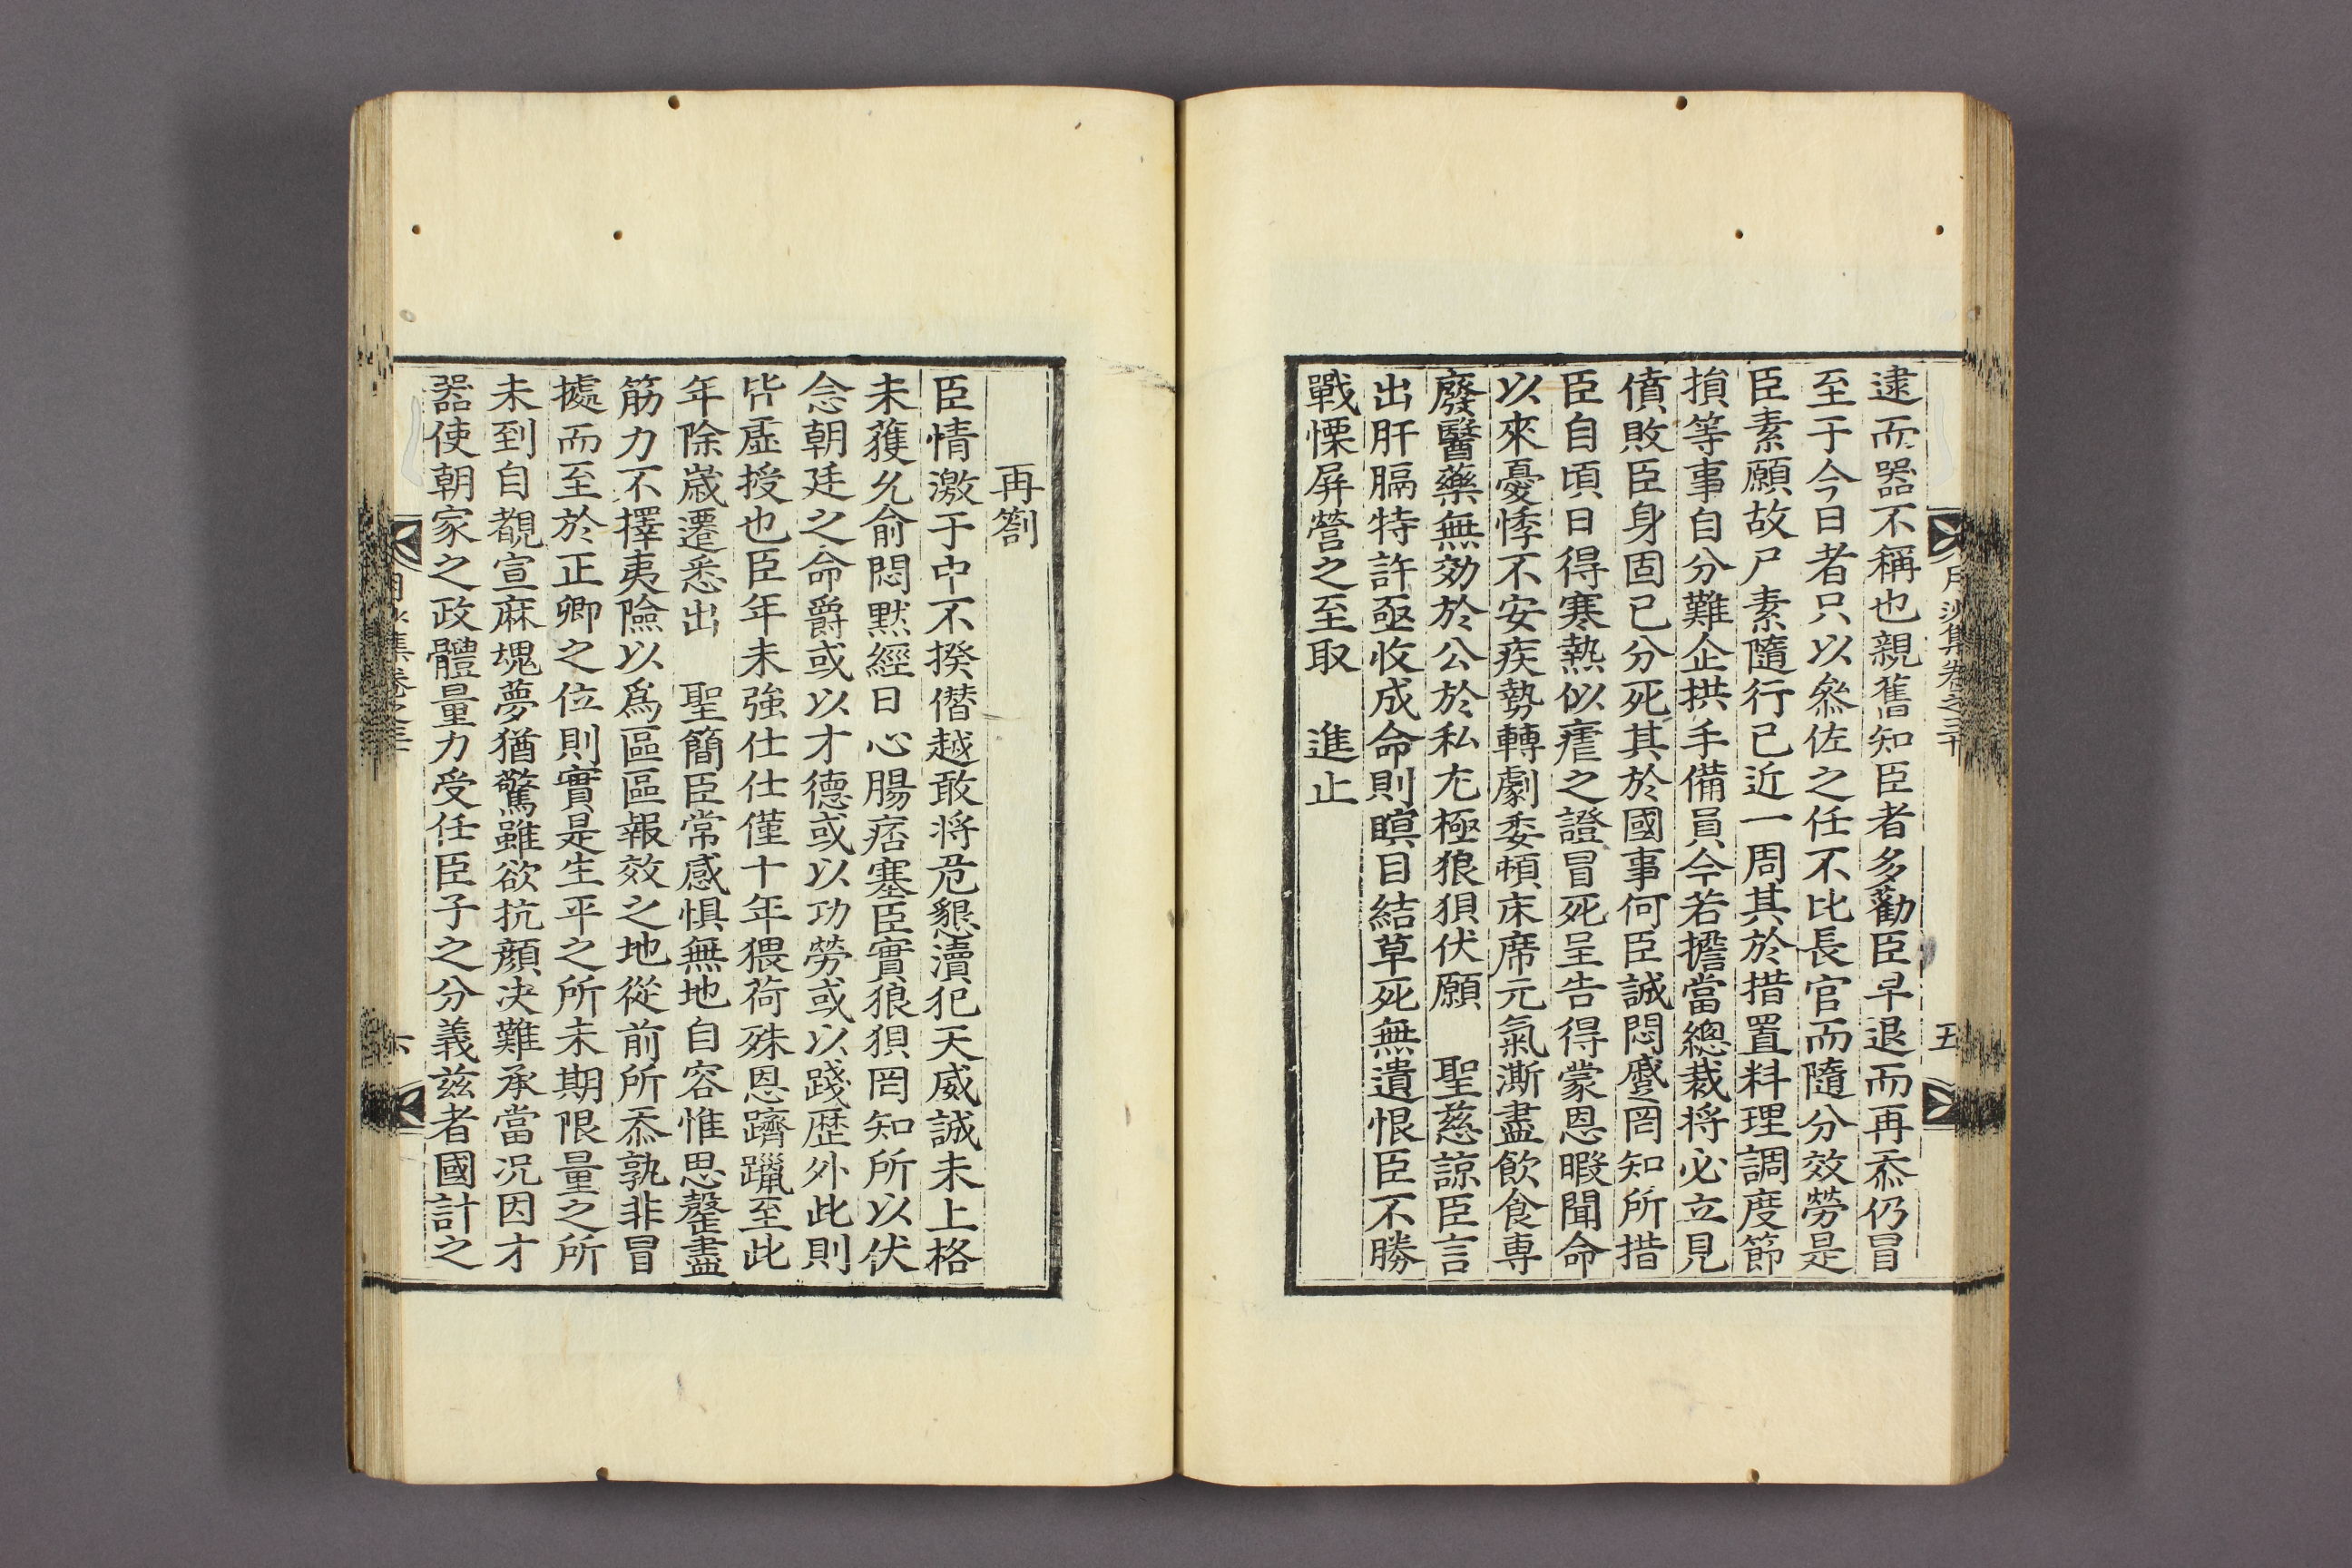 逮而器不稱也親舊知臣者多勸臣早退而再忝仍冒
至于今日者只以叅佐之任不比長官而隨分效勞是
臣素願故尸素隨行已近一周其於措置料理調度節
損等事自分難企拱手備員今若擔當總裁將必立見
僨敗臣身固已分死其於國事何臣誠悶蹙罔知所措
臣自頃日得寒熱似瘧之證冒死呈告得蒙恩暇聞命
以來憂悸不安疾勢轉劇委頓床席元氣澌盡飮食専
廢醫藥無効於公於私尤極狼狽伏願　聖慈諒臣言
出肝膈特許亟收成命則瞑目結草死無遺恨臣不勝
戰慄屏營之至取　進止
月沙集卷之三十
五
再箚
臣情激于中不揆僭越敢將危懇瀆犯天威誠未上格
未蒦允俞悶默經日心腸痞塞臣實狼狽罔知所以伏
念朝廷之命爵或以才德或以功勞或以踐歷外此則
皆虛授也臣年未強仕仕僅十年猥荷殊恩躋躐至此
年除歲遷悉出　聖簡臣常感惧無地自容惟思罄盡
筋力不擇夷險以爲區區報效之地從前所忝孰非冒
據而至於正卿之位則實是生平之所未期限量之所
未到自覩宣麻塊夢猶驚雖欲抗顔决難承當况因才
器使朝家之政體量力受任臣子之分義兹者國計之
月沙集卷之三十
六